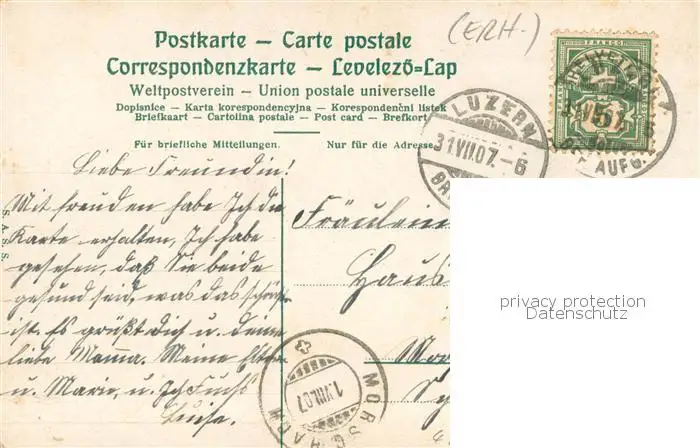 (ERH.)
Postkarte — Carte postale
Correspondenzkarte — Levelező=Lap
Weltpostverein — Union postale universelle
Dopisnice — Karta korespondencyjna — Korespondenční lístek
Briefkaart — Cartolina postale — Post card — Brefkort
Für briefliche Mitteilungen.
Nur für die Adresse
FRANCO
HELVETIA
5
AUFG.
LUZERN
31.VII.07.-6
Liebe Freundin!
Mit freuden habe Ich die
Karte erhalten, Ich habe
gesehen, daß Sie beide
gesund seid, was das schönste
ist. Es grüßt Dich u. deine
liebe Mama. Meine Eltern
u. Marie, u. Ich
Luise.
S. A. S. S.
Fräulein
Haus
MORSCHACH
1.VIII.07
privacy protection
Datenschutz